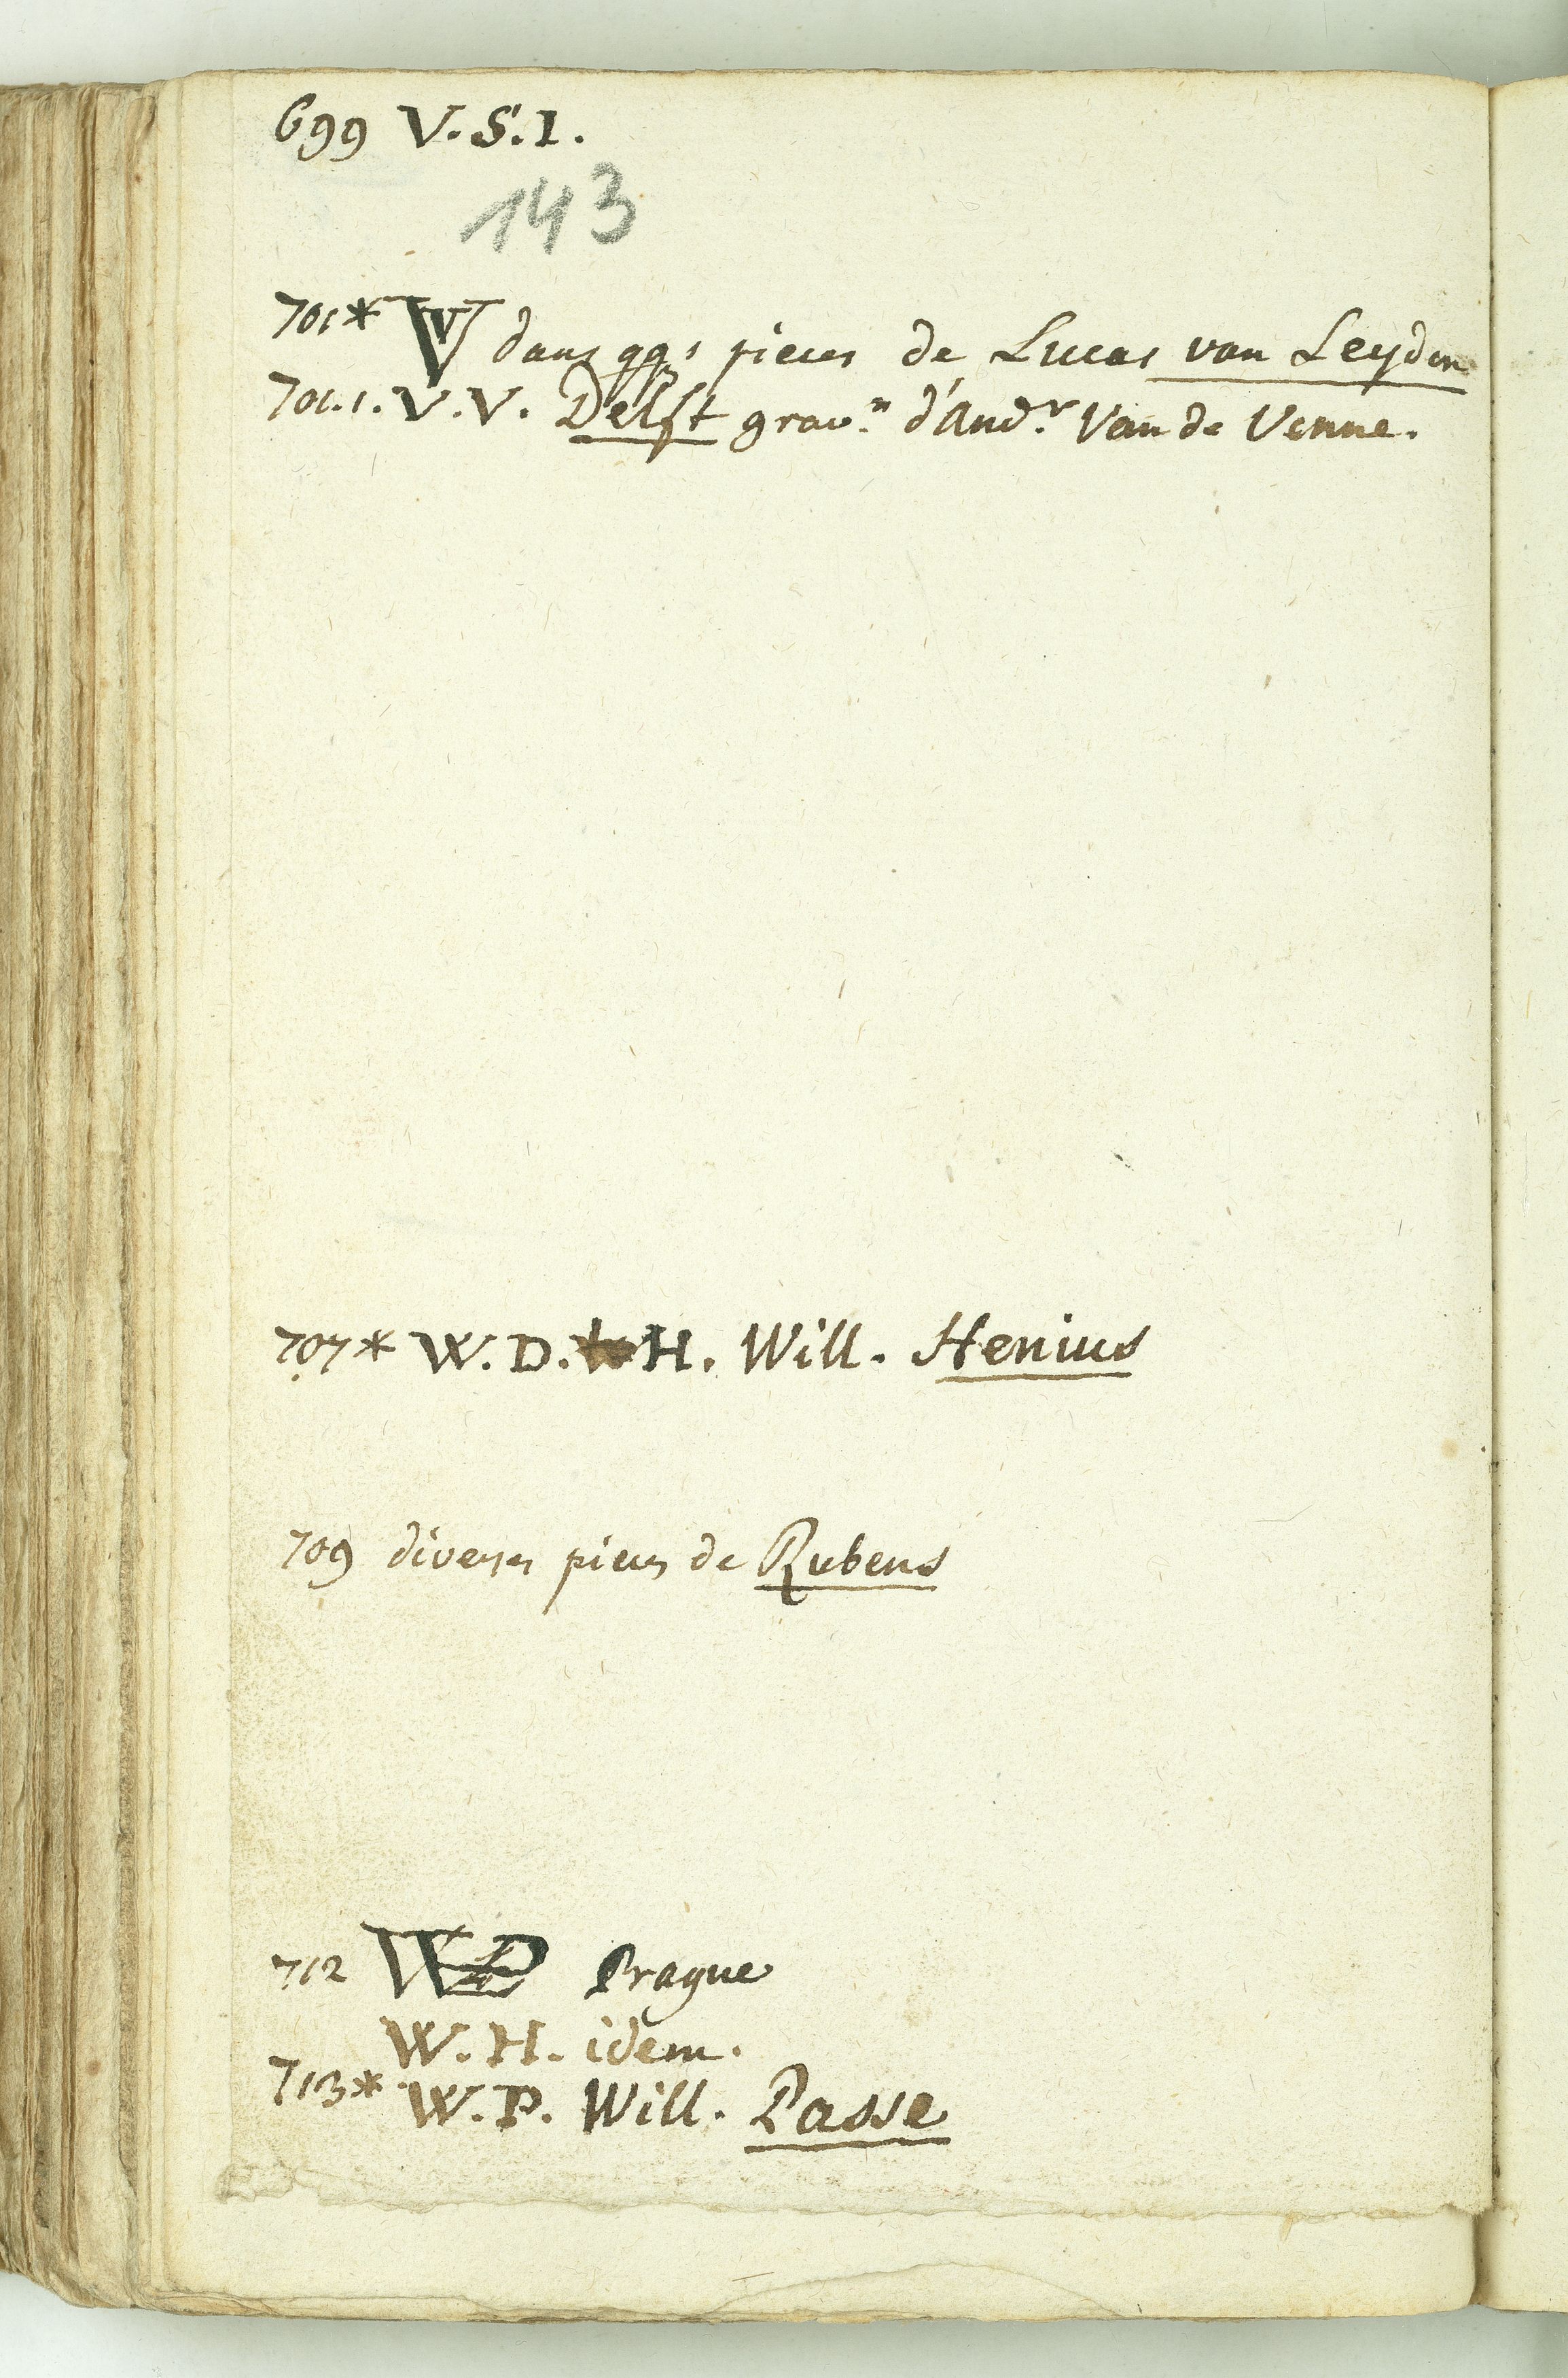 699 V.S.I.
143
701* W dans qqs pieces de Lucas van Leyden
701.1. V.V. Delft grav.n d'And.r Van de Venne.
707* W.D. H. Will. Henius
709 diverses pieces de Rubens
712 Prague
W.H. idem.
713* W.P. Will. Passe